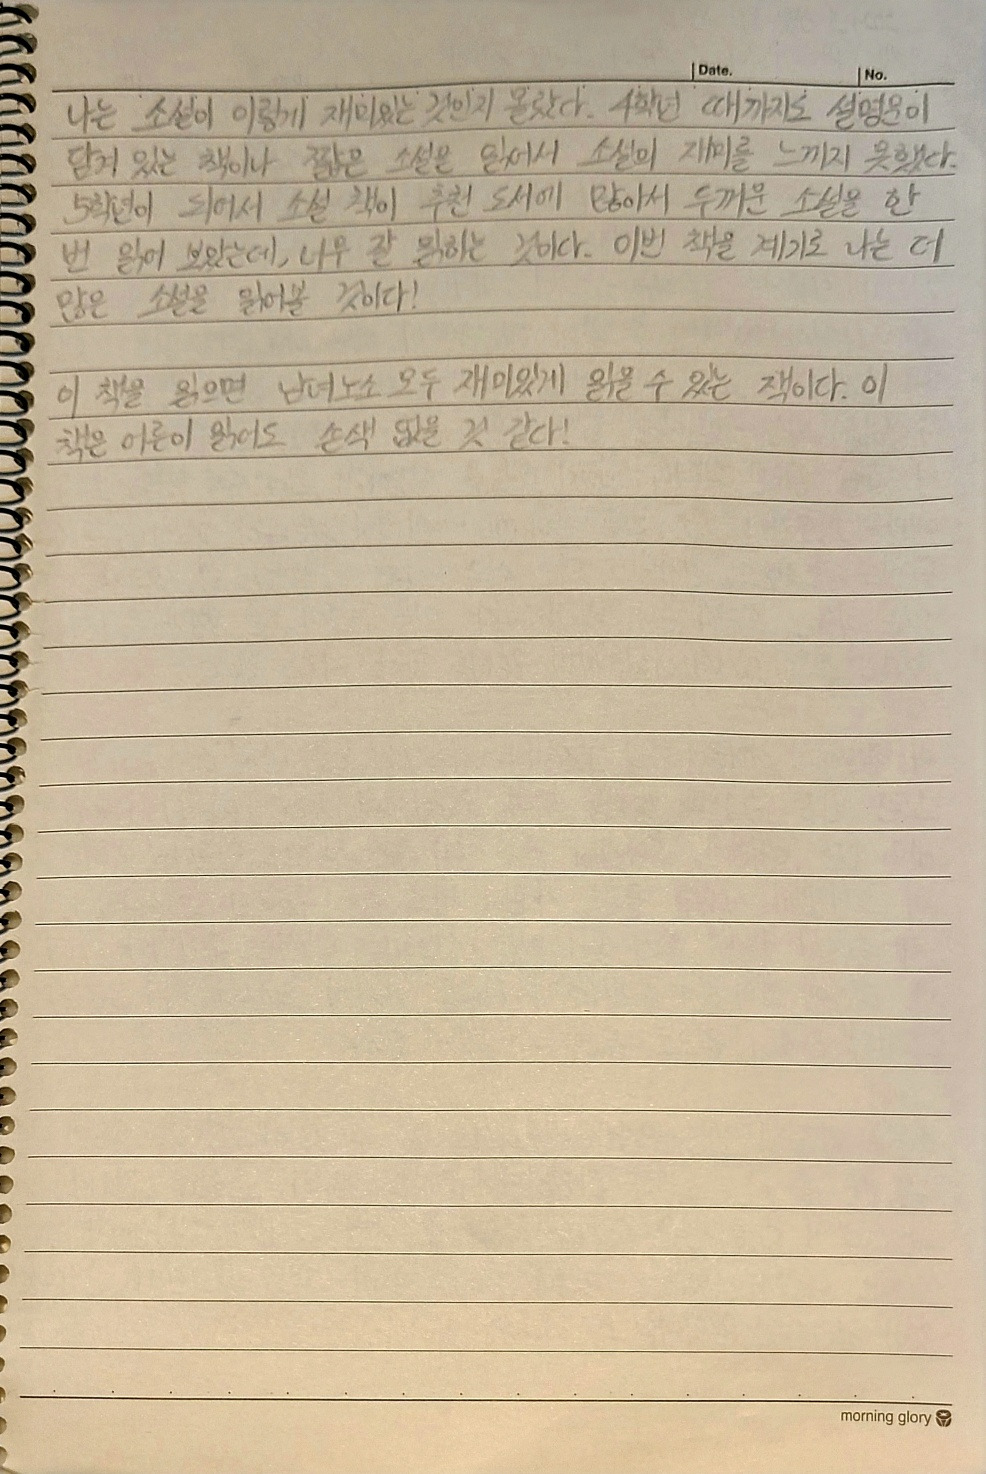 Date.
No.
나는 소설이 이렇게 재미있는 것인지 몰랐다. 4학년 때까지도 설명문이
담겨 있는 책이나 짧은 소설을 읽어서 소설의 재미를 느끼지 못했다.
5학년이 되어서 소설 책이 추천 도서에 많아서 두꺼운 소설을 한
번 읽어 보았는데, 너무 잘 읽히는 것이다. 이번 책을 계기로 나는 더
많은 소설을 읽어볼 것이다!
이 책을 읽으면 남녀노소 모두 재미있게 읽을 수 있는 책이다. 이
책은 어른이 읽어도 손색 없을 것 같다!
morning glory